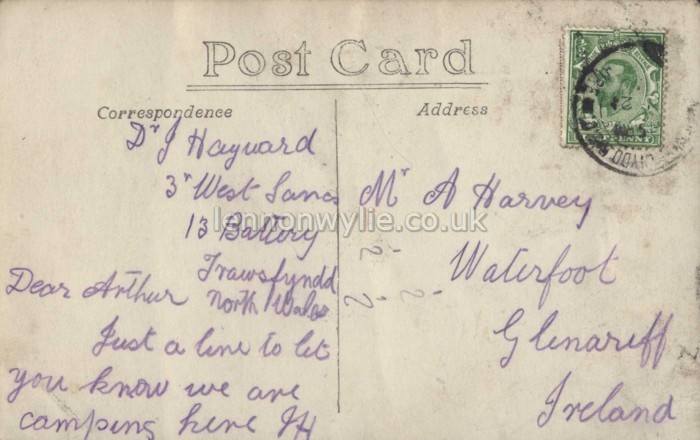 Post Card
Correspondence
Address
Dr J Hayward
3r West Lancs
13 Battery
Trawsfyndd
North Wales
Dear Arthur
Just a line to let
you know we are
camping here JH
Mr A Harvey
Waterfoot
Glenariff
Ireland
lennonwylie.co.uk
PENNY